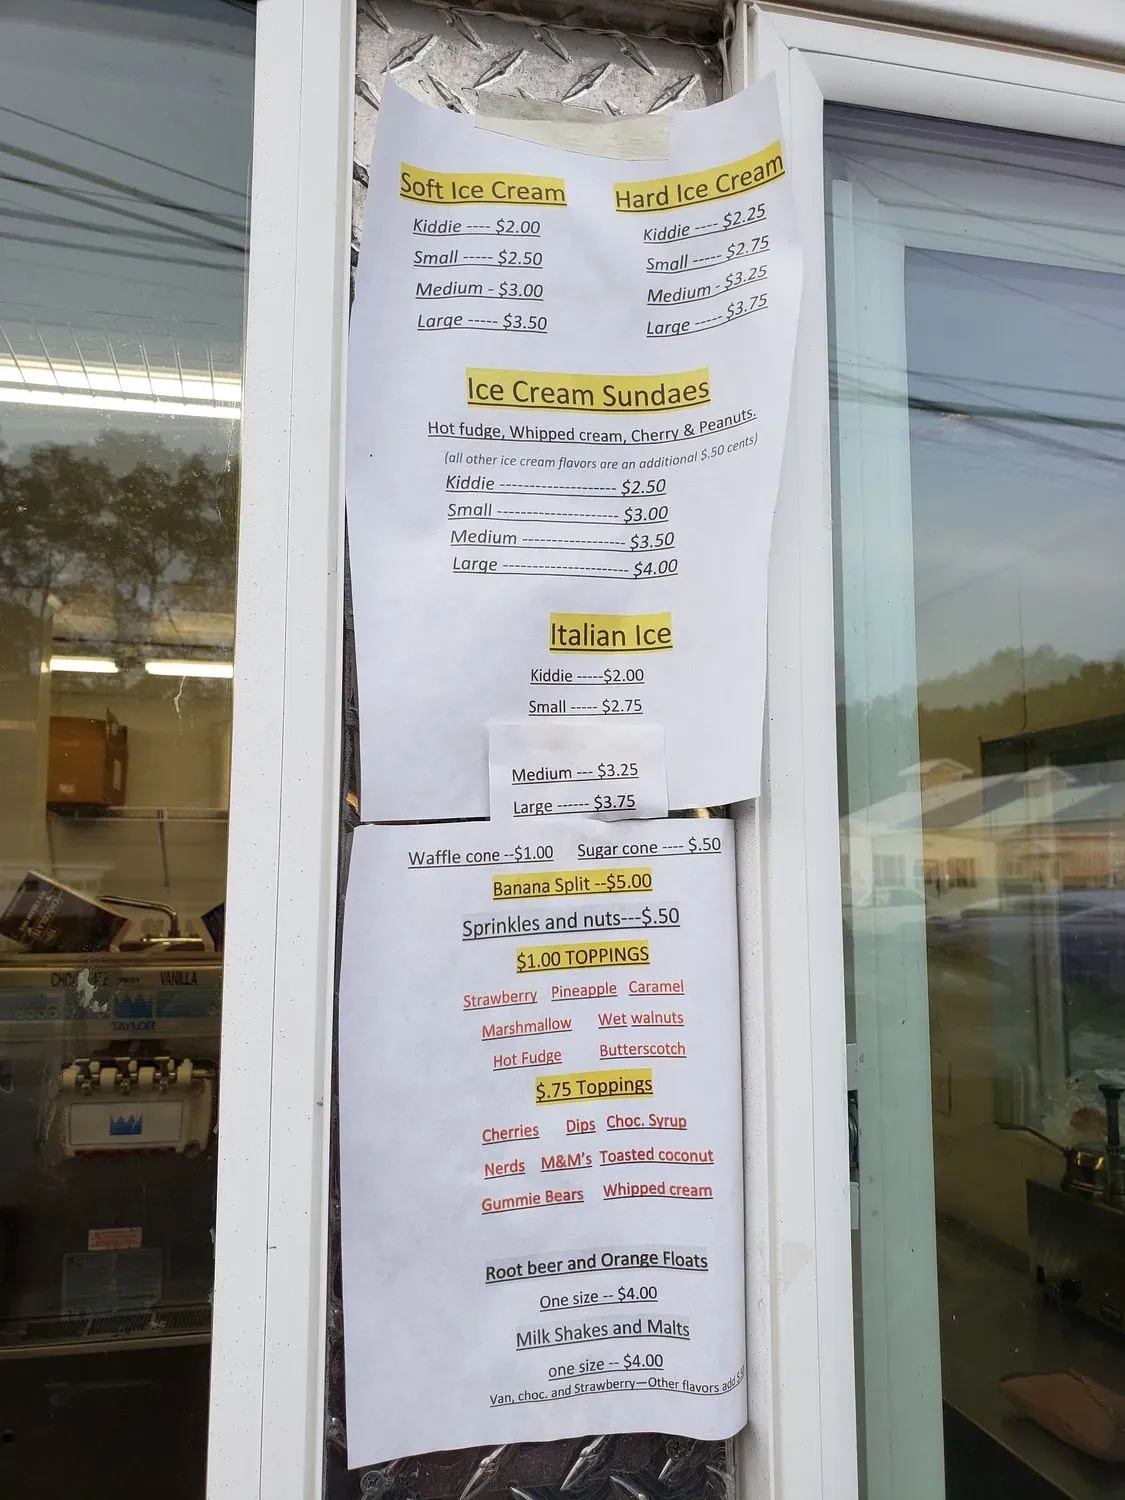 Soft Ice Cream
Kiddie ---- $2.00
Small ----- $2.50
Medium - $3.00
Large ----- $3.50
Hard Ice Cream
Kiddie ---- $2.25
Small ----- $2.75
Medium - $3.25
Large ----- $3.75
Ice Cream Sundaes
Hot fudge, Whipped cream, Cherry & Peanuts.
(all other ice cream flavors are an additional $.50 cents)
Kiddie -------------------- $2.50
Small --------------------- $3.00
Medium ------------------ $3.50
Large ---------------------- $4.00
Italian Ice
Kiddie -----$2.00
Small ----- $2.75
Medium --- $3.25
Large ------ $3.75
Waffle cone --$1.00 Sugar cone ---- $.50
Banana Split --$5.00
Sprinkles and nuts---$.50
$1.00 TOPPINGS
Strawberry Pineapple Caramel
Marshmallow Wet walnuts
Hot Fudge Butterscotch
$.75 Toppings
Cherries Dips Choc. Syrup
Nerds M&M's Toasted coconut
Gummie Bears Whipped cream
Root beer and Orange Floats
One size -- $4.00
Milk Shakes and Malts
one size -- $4.00
Van, choc. and Strawberry—Other flavors add
VANILLA
TAYLOR